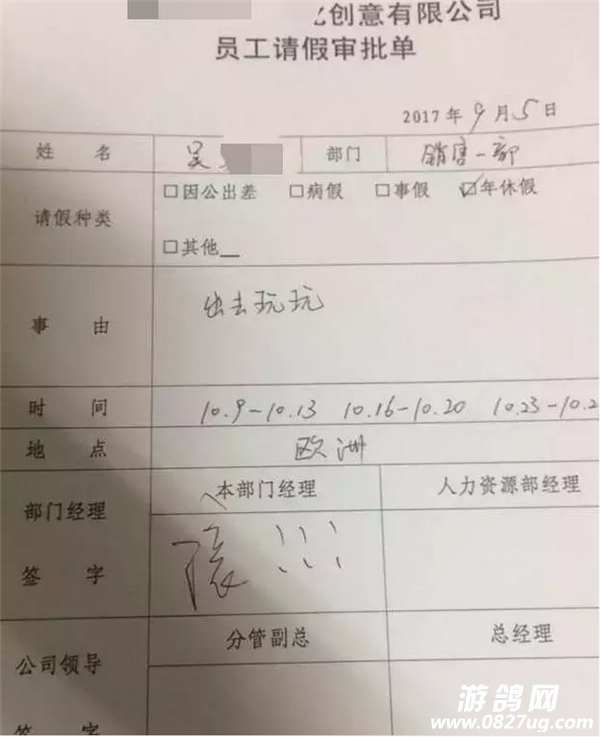 创意有限公司
员工请假审批单
2017年9月5日
姓 名 吴 部门 销售一部
请假种类 □因公出差 □病假 □事假 ☑年休假
□其他__
事 由 出去玩玩
时 间 10.9-10.13 10.16-10.20 10.23-10.2
地 点 欧洲
部门经理 本部门经理 人力资源部经理
签 字 !!!
公司领导 分管副总 总经理
签 字
游鸽网
www.0827ug.com